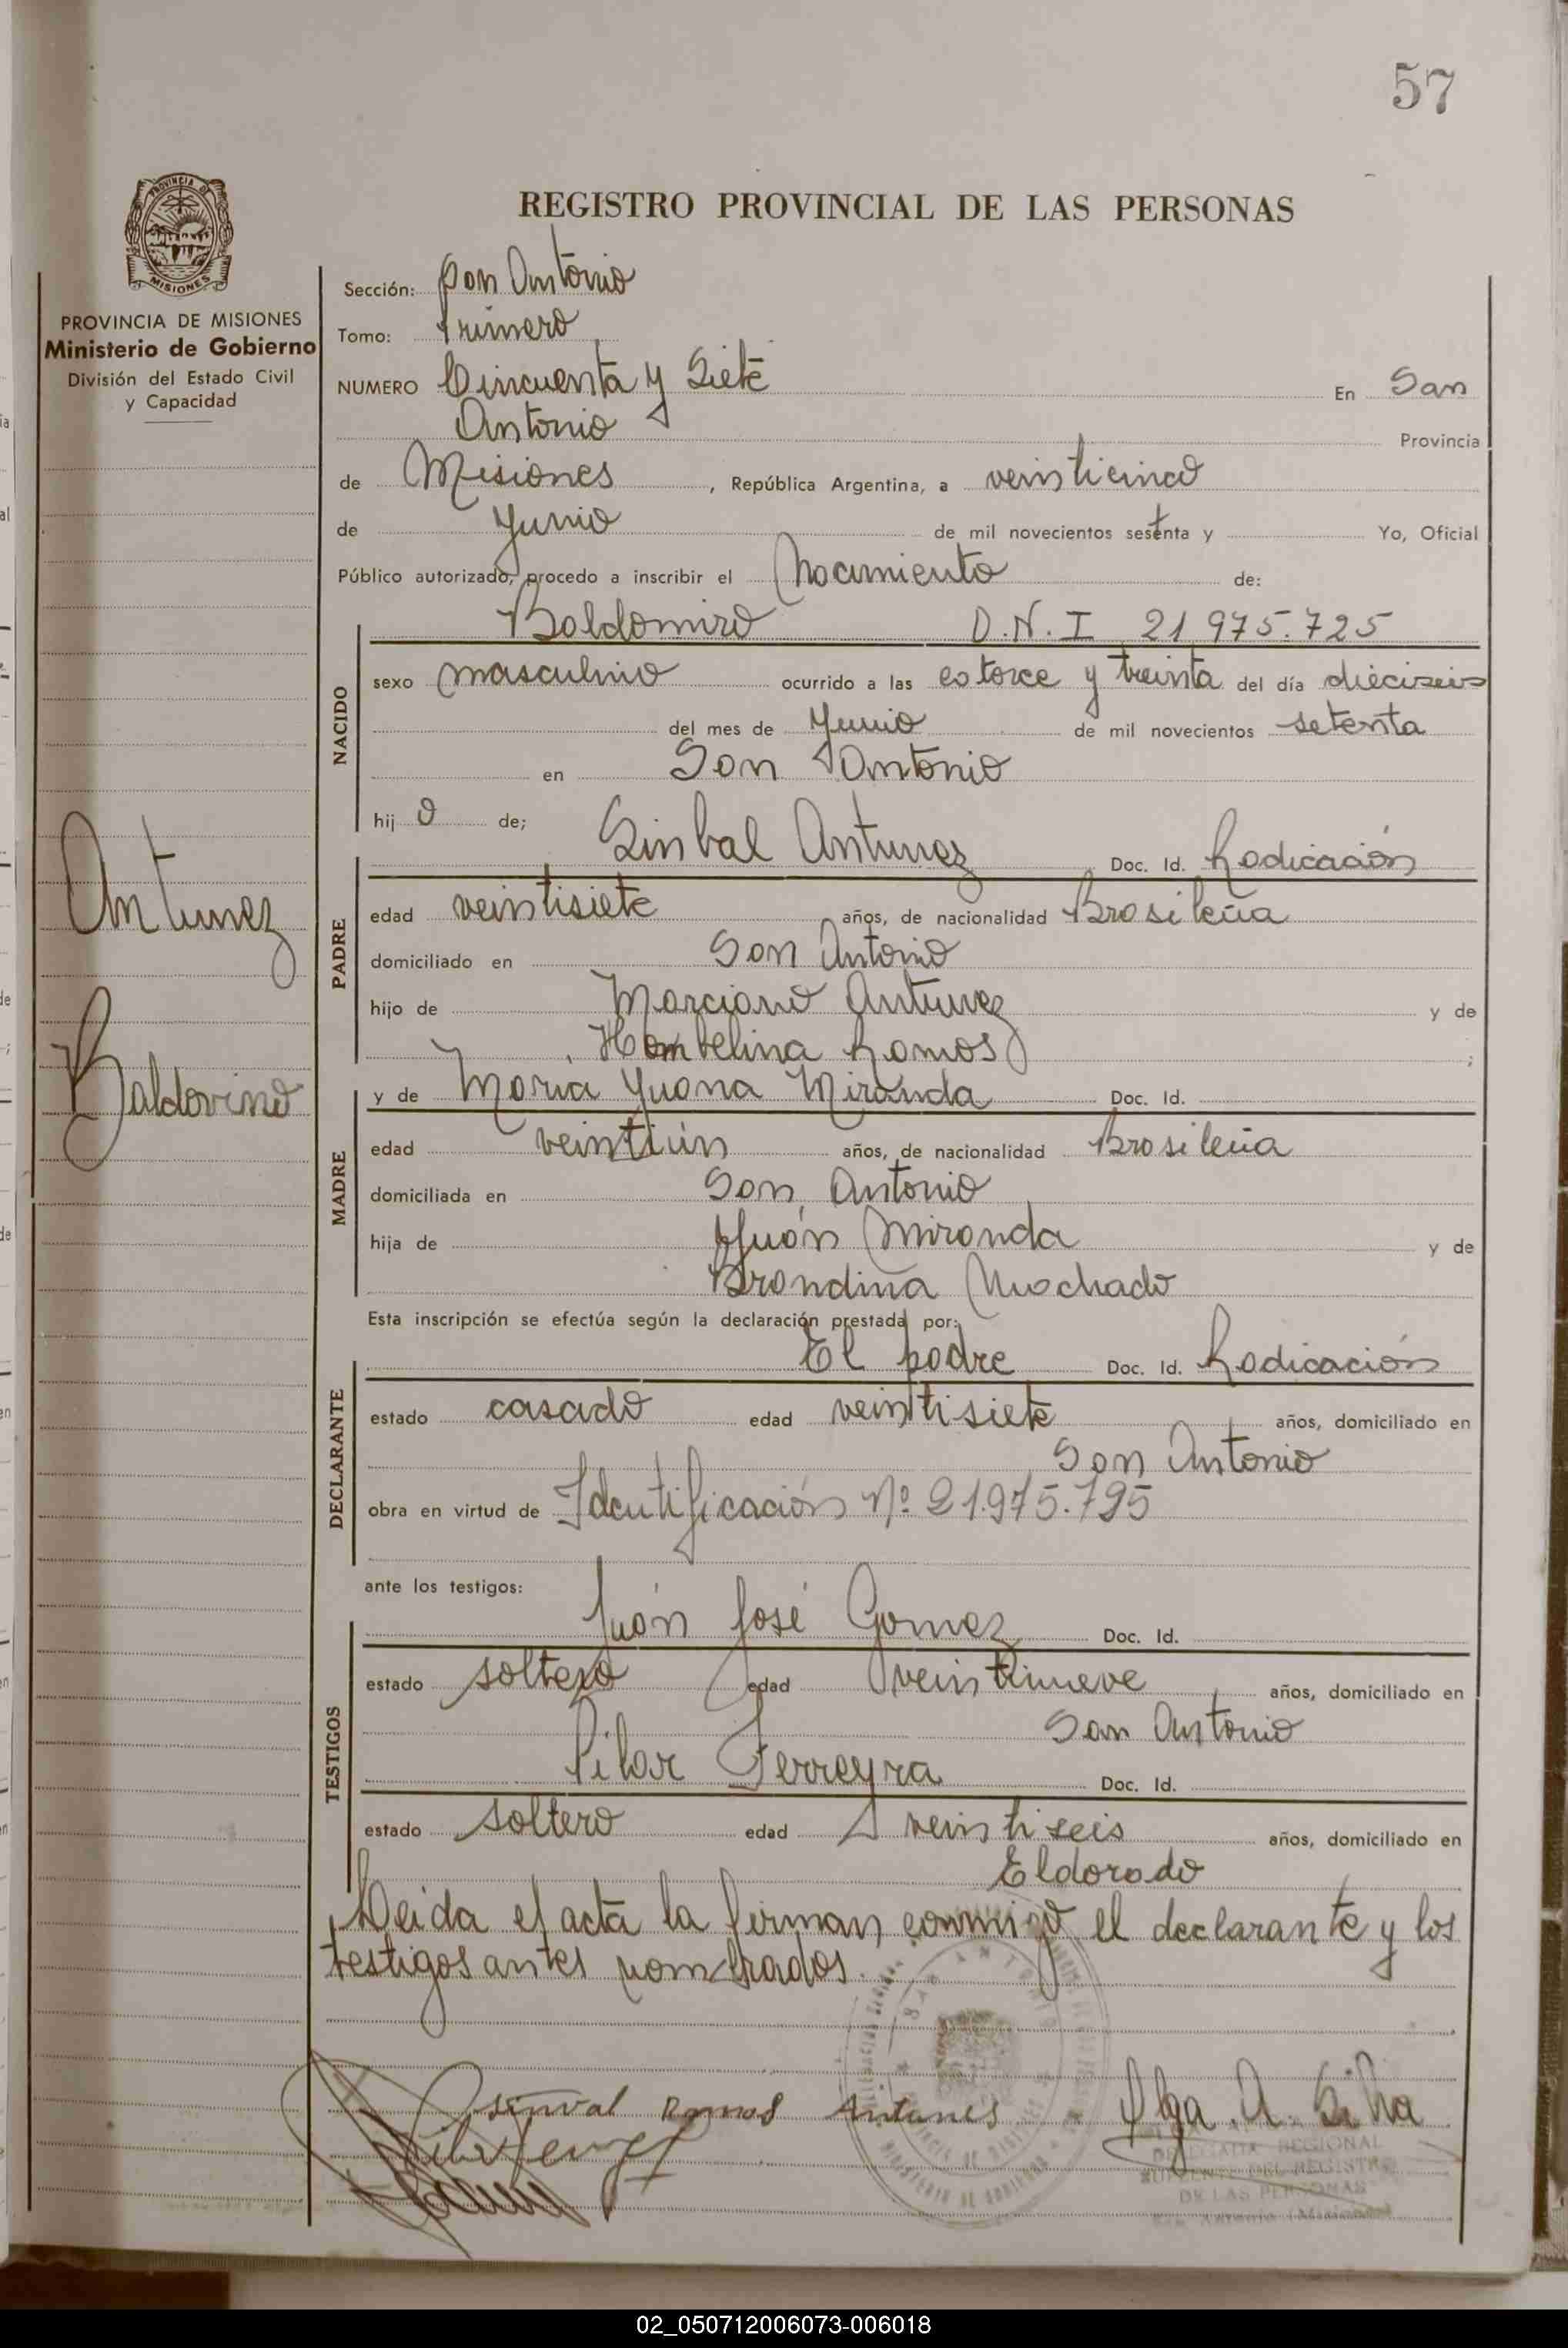 57
REGISTRO PROVINCIAL DE LAS PERSONAS
PROVINCIA DE
MISIONES
PROVINCIA DE MISIONES
Ministerio de Gobierno
División del Estado Civil
y Capacidad
Sección: San Antonio
Tomo: Primero
NUMERO Cincuenta y Siete En San
Antonio Provincia
de Misiones, República Argentina, a veinticinco
de Junio de mil novecientos sesenta y Yo, Oficial
Público autorizado, procedo a inscribir el Nacimiento de:
Baldomiro D.N.I 21 975.725
NACIDO
sexo masculino ocurrido a las catorce y treinta del día dieciseis
del mes de Junio de mil novecientos setenta
en San Antonio
hijo de;
Sinbal Antunez Doc. Id. Radicación
Antunez
Baldovino
PADRE
edad veintisiete años, de nacionalidad Brasileña
domiciliado en San Antonio
hijo de Marciano Antunez y de
Hombelina Ramos;
y de María Juana Miranda Doc. Id.
MADRE
edad veintiún años, de nacionalidad Brasileña
domiciliada en San Antonio
hija de Juán Miranda y de
Brandina Machado
Esta inscripción se efectúa según la declaración prestada por:
El padre Doc. Id. Radicación
DECLARANTE
estado casado edad veintisiete años, domiciliado en
San Antonio
obra en virtud de Identificación Nº 21.975.725
ante los testigos:
Juán José Gomez Doc. Id.
TESTIGOS
estado soltero edad veintinueve años, domiciliado en
San Antonio
Pilar Ferreyra Doc. Id.
estado soltero edad veintiseis años, domiciliado en
Eldorado
Leida el acta la firman conmigo el declarante y los
testigos antes nombrados.
Ramos Antunes Olga A. Silva
DELEGADA REGIONAL
DEL REGISTRO
DE LAS PERSONAS
San Antonio (Misiones)
02_050712006073-006018